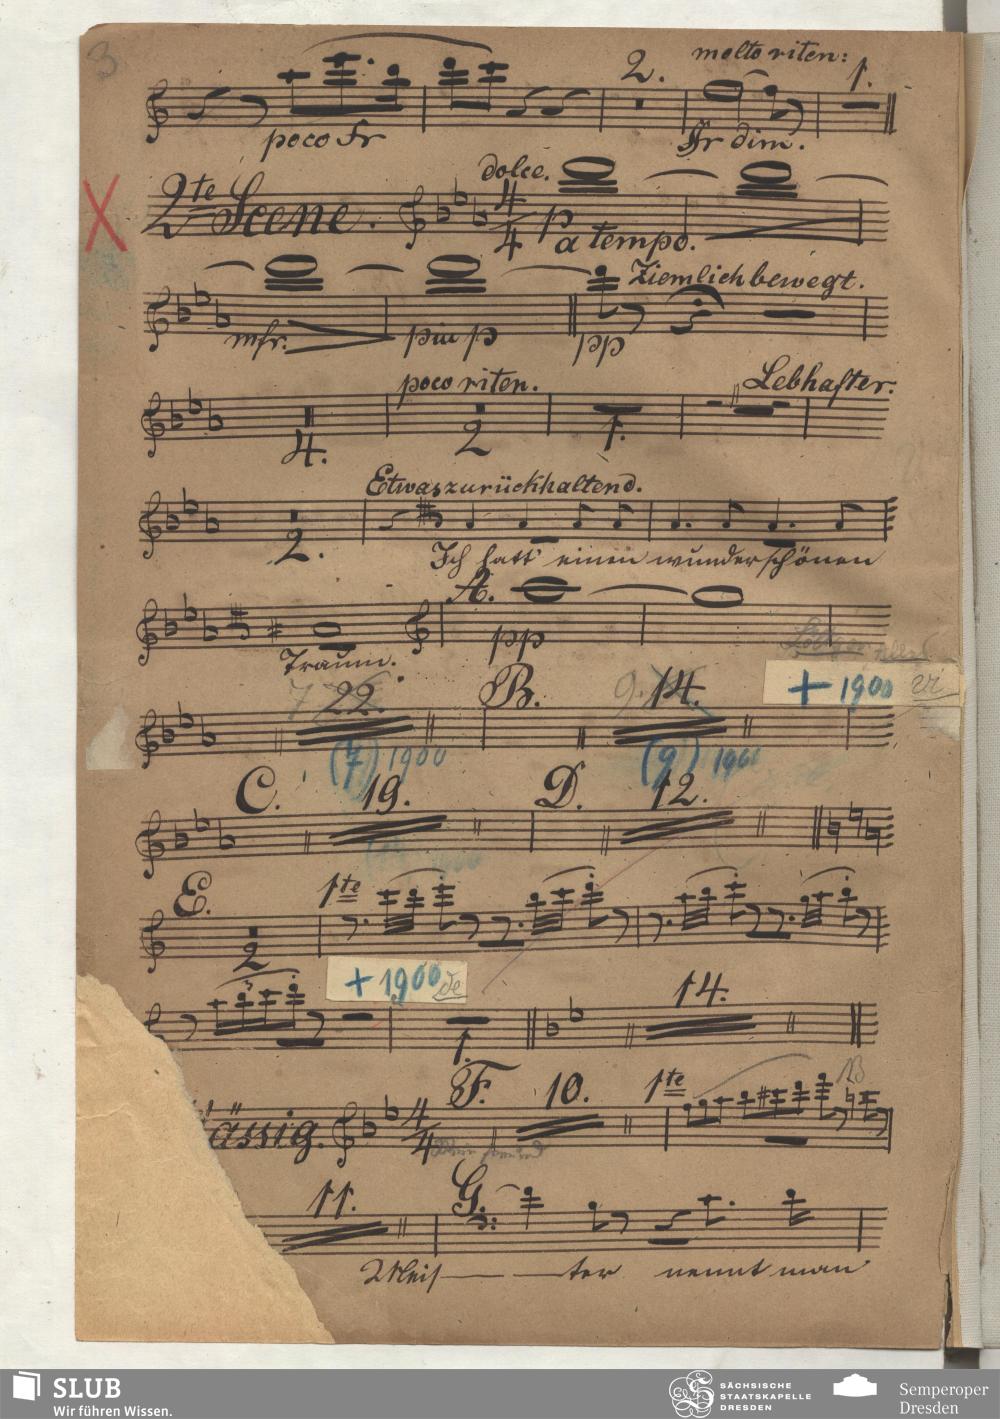 3
2. molto riten: 1.
poco fr
fr dim.
dolce.
X 2te Scene. 4/4 p a tempo.
Ziemlich bewegt.
mfr. piu p pp
poco riten. Lebhafter.
4. 2 1.
Etwas zurückhaltend.
2. Ich hatt' einen wunderschönen
A.
pp
Traum.
7 22. B. 9. 14. + 1900
(7) 1900 (9) 1900
C. 19. D. 12.
E. 1te
2
+ 1900 de
3 14.
1.
F. 10. 1te
ässig. 4/4
11. G.
Meis ter nennt man
SLUB
Wir führen Wissen.
SÄCHSISCHE
STAATSKAPELLE
DRESDEN
Semperoper
Dresden